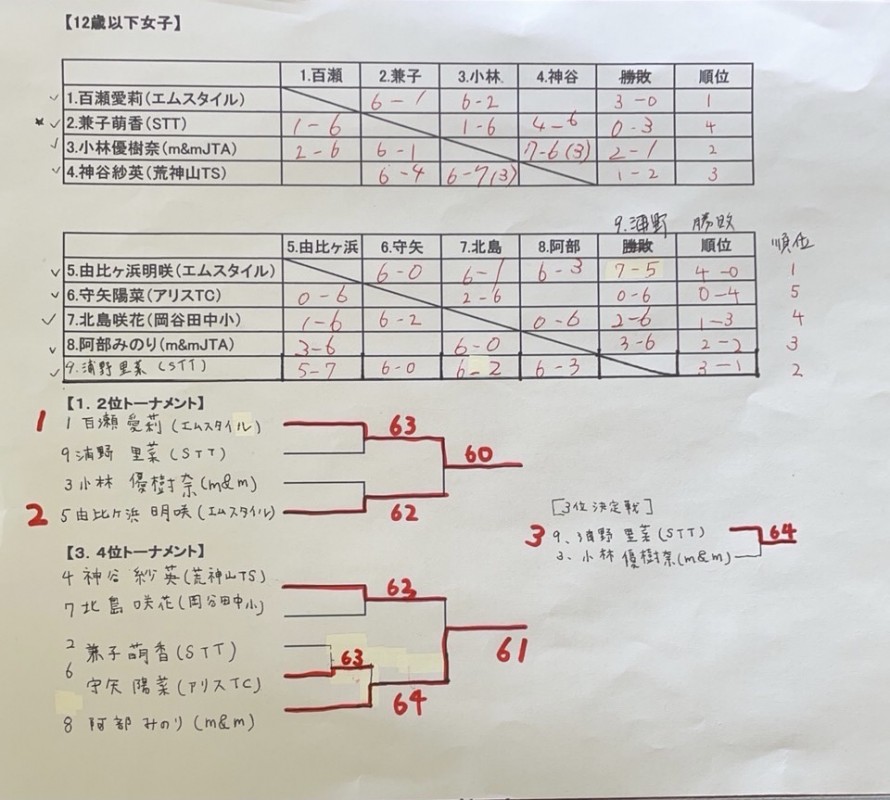 【12歳以下女子】
1.百瀬 2.兼子 3.小林 4.神谷 勝敗 順位
1.百瀬愛莉(エムスタイル) 6-1 6-2 3-0 1
2.兼子萌香(STT) 1-6 1-6 4-6 0-3 4
3.小林優樹奈(m&mJTA) 2-6 6-1 7-6(3) 2-1 2
4.神谷紗英(荒神山TS) 6-4 6-7(3) 1-2 3
9.浦野 勝敗
5.由比ヶ浜 6.守矢 7.北島 8.阿部 勝敗 順位 順位
5.由比ヶ浜明咲(エムスタイル) 6-0 6-1 6-3 7-5 4-0 1
6.守矢陽菜(アリスTC) 0-6 2-6 0-6 0-4 5
7.北島咲花(岡谷田中小) 1-6 6-2 0-6 2-6 1-3 4
8.阿部みのり(m&mJTA) 3-6 6-0 3-6 2-2 3
9.浦野里菜(STT) 5-7 6-0 6-2 6-3 3-1 2
【1.2位トーナメント】
1 1 百瀬 愛莉(エムスタイル) 63
9 浦野 里菜(STT)
60
3 小林 優樹奈(m&m)
2 5 由比ヶ浜 明咲(エムスタイル) 62
[3位決定戦]
3 9、浦野 里菜(STT) 64
3、小林 優樹奈(m&m)
【3.4位トーナメント】
4 神谷 紗英(荒神山TS) 63
7 北島 咲花(岡谷田中小)
61
2 兼子萌香(STT)
63
6 守矢 陽菜(アリスTC)
64
8 阿部 みのり(m&m)